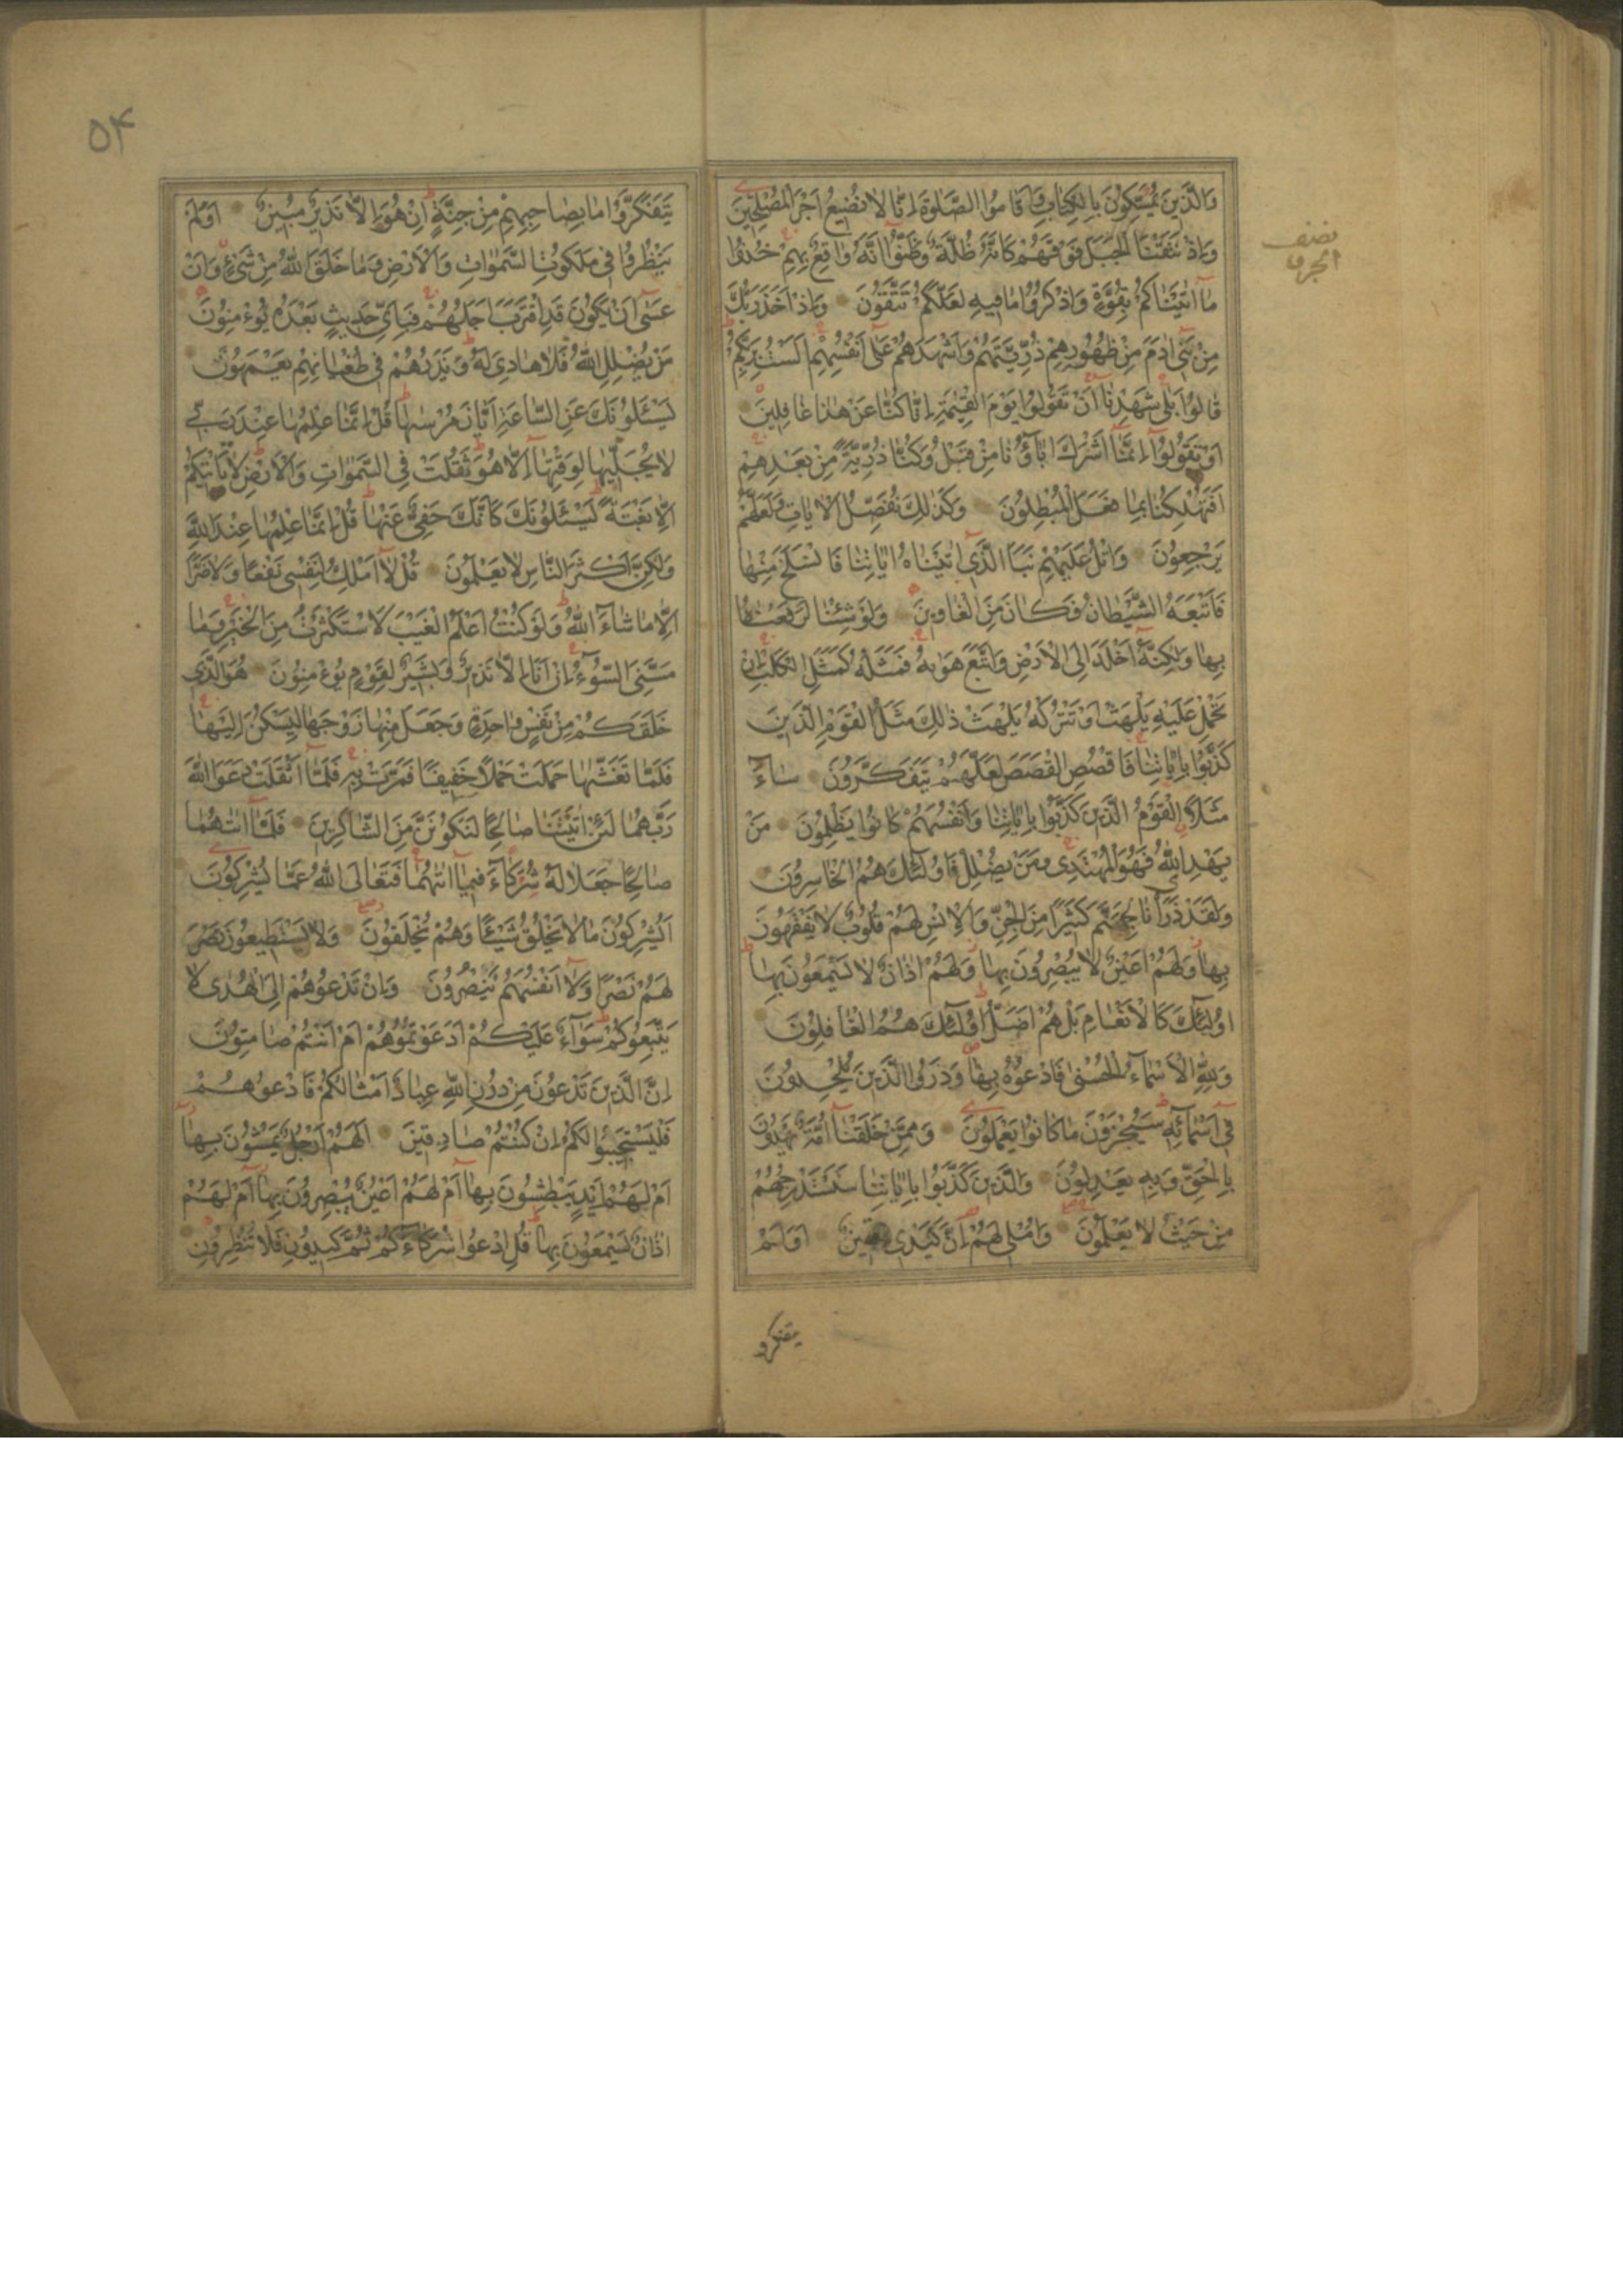 وَالَّذِينَ يُمَسِّكُونَ بِالْكِتَابِ وَاَقَامُوا الصَّلٰوةَ اِنَّا لَا نُضِيعُ اَجْرَ الْمُصْلِحِينَ
وَاِذْ نَتَقْنَا الْجَبَلَ فَوْقَهُمْ كَاَنَّهُ ظُلَّةٌ وَظَنُّوٓا اَنَّهُ وَاقِعٌ بِهِمْ خُذُوا
مَآ اٰتَيْنَاكُمْ بِقُوَّةٍ وَاذْكُرُوا مَا فِيهِ لَعَلَّكُمْ تَتَّقُونَ وَاِذْ اَخَذَ رَبُّكَ
مِنْ بَنِىٓ اٰدَمَ مِنْ ظُهُورِهِمْ ذُرِّيَّتَهُمْ وَاَشْهَدَهُمْ عَلٰٓى اَنْفُسِهِمْ اَلَسْتُ بِرَبِّكُمْ
قَالُوا بَلٰى شَهِدْنَآ اَنْ تَقُولُوا يَوْمَ الْقِيٰمَةِ اِنَّا كُنَّا عَنْ هٰذَا غَافِلِينَ
اَوْ تَقُولُوٓا اِنَّمَآ اَشْرَكَ اٰبَآؤُنَا مِنْ قَبْلُ وَكُنَّا ذُرِّيَّةً مِنْ بَعْدِهِمْ
اَفَتُهْلِكُنَا بِمَا فَعَلَ الْمُبْطِلُونَ وَكَذٰلِكَ نُفَصِّلُ الْاٰيَاتِ وَلَعَلَّهُمْ
يَرْجِعُونَ وَاتْلُ عَلَيْهِمْ نَبَاَ الَّذِىٓ اٰتَيْنَاهُ اٰيَاتِنَا فَانْسَلَخَ مِنْهَا
فَاَتْبَعَهُ الشَّيْطَانُ فَكَانَ مِنَ الْغَاوِينَ وَلَوْ شِئْنَا لَرَفَعْنَاهُ
بِهَا وَلٰكِنَّهُٓ اَخْلَدَ اِلَى الْاَرْضِ وَاتَّبَعَ هَوٰيهُ فَمَثَلُهُ كَمَثَلِ الْكَلْبِ اِنْ
تَحْمِلْ عَلَيْهِ يَلْهَثْ اَوْ تَتْرُكْهُ يَلْهَثْ ذٰلِكَ مَثَلُ الْقَوْمِ الَّذِينَ
كَذَّبُوا بِاٰيَاتِنَا فَاقْصُصِ الْقَصَصَ لَعَلَّهُمْ يَتَفَكَّرُونَ سَآءَ
مَثَلًا الْقَوْمُ الَّذِينَ كَذَّبُوا بِاٰيَاتِنَا وَاَنْفُسَهُمْ كَانُوا يَظْلِمُونَ مَنْ
يَهْدِ اللّٰهُ فَهُوَ الْمُهْتَدِى وَمَنْ يُضْلِلْ فَاُولٰٓئِكَ هُمُ الْخَاسِرُونَ
وَلَقَدْ ذَرَاْنَا لِجَهَنَّمَ كَثِيرًا مِنَ الْجِنِّ وَالْاِنْسِ لَهُمْ قُلُوبٌ لَا يَفْقَهُونَ
بِهَا وَلَهُمْ اَعْيُنٌ لَا يُبْصِرُونَ بِهَا وَلَهُمْ اٰذَانٌ لَا يَسْمَعُونَ بِهَا
اُولٰٓئِكَ كَالْاَنْعَامِ بَلْ هُمْ اَضَلُّ اُولٰٓئِكَ هُمُ الْغَافِلُونَ
وَلِلّٰهِ الْاَسْمَآءُ الْحُسْنٰى فَادْعُوهُ بِهَا وَذَرُوا الَّذِينَ يُلْحِدُونَ
فِىٓ اَسْمَآئِهِ سَيُجْزَوْنَ مَا كَانُوا يَعْمَلُونَ وَمِمَّنْ خَلَقْنَآ اُمَّةٌ يَهْدُونَ
بِالْحَقِّ وَبِهِ يَعْدِلُونَ وَالَّذِينَ كَذَّبُوا بِاٰيَاتِنَا سَنَسْتَدْرِجُهُمْ
مِنْ حَيْثُ لَا يَعْلَمُونَ وَاُمْلِى لَهُمْ اِنَّ كَيْدِى مَتِينٌ اَوَلَمْ
يتفكروا
نصف
الحزب
٥۴
يَتَفَكَّرُوا مَا بِصَاحِبِهِمْ مِنْ جِنَّةٍ اِنْ هُوَ اِلَّا نَذِيرٌ مُبِينٌ اَوَلَمْ
يَنْظُرُوا فِى مَلَكُوتِ السَّمٰوَاتِ وَالْاَرْضِ وَمَا خَلَقَ اللّٰهُ مِنْ شَىْءٍ وَاَنْ
عَسٰٓى اَنْ يَكُونَ قَدِ اقْتَرَبَ اَجَلُهُمْ فَبِاَىِّ حَدِيثٍ بَعْدَهُ يُؤْمِنُونَ
مَنْ يُضْلِلِ اللّٰهُ فَلَا هَادِىَ لَهُ وَيَذَرُهُمْ فِى طُغْيَانِهِمْ يَعْمَهُونَ
يَسْئَلُونَكَ عَنِ السَّاعَةِ اَيَّانَ مُرْسٰيهَا قُلْ اِنَّمَا عِلْمُهَا عِنْدَ رَبِّى
لَا يُجَلِّيهَا لِوَقْتِهَآ اِلَّا هُوَ ثَقُلَتْ فِى السَّمٰوَاتِ وَالْاَرْضِ لَا تَاْتِيكُمْ
اِلَّا بَغْتَةً يَسْئَلُونَكَ كَاَنَّكَ حَفِىٌّ عَنْهَا قُلْ اِنَّمَا عِلْمُهَا عِنْدَ اللّٰهِ
وَلٰكِنَّ اَكْثَرَ النَّاسِ لَا يَعْلَمُونَ قُلْ لَآ اَمْلِكُ لِنَفْسِى نَفْعًا وَلَا ضَرًّا
اِلَّا مَا شَآءَ اللّٰهُ وَلَوْ كُنْتُ اَعْلَمُ الْغَيْبَ لَاسْتَكْثَرْتُ مِنَ الْخَيْرِ وَمَا
مَسَّنِىَ السُّوٓءُ اِنْ اَنَا اِلَّا نَذِيرٌ وَبَشِيرٌ لِقَوْمٍ يُؤْمِنُونَ هُوَ الَّذِى
خَلَقَكُمْ مِنْ نَفْسٍ وَاحِدَةٍ وَجَعَلَ مِنْهَا زَوْجَهَا لِيَسْكُنَ اِلَيْهَا
فَلَمَّا تَغَشّٰيهَا حَمَلَتْ حَمْلًا خَفِيفًا فَمَرَّتْ بِهِ فَلَمَّآ اَثْقَلَتْ دَعَوَا اللّٰهَ
رَبَّهُمَا لَئِنْ اٰتَيْتَنَا صَالِحًا لَنَكُونَنَّ مِنَ الشَّاكِرِينَ فَلَمَّآ اٰتٰيهُمَا
صَالِحًا جَعَلَا لَهُ شُرَكَآءَ فِيمَآ اٰتٰيهُمَا فَتَعَالَى اللّٰهُ عَمَّا يُشْرِكُونَ
اَيُشْرِكُونَ مَا لَا يَخْلُقُ شَيْئًا وَهُمْ يُخْلَقُونَ وَلَا يَسْتَطِيعُونَ
لَهُمْ نَصْرًا وَلَآ اَنْفُسَهُمْ يَنْصُرُونَ وَاِنْ تَدْعُوهُمْ اِلَى الْهُدٰى لَا
يَتَّبِعُوكُمْ سَوَآءٌ عَلَيْكُمْ اَدَعَوْتُمُوهُمْ اَمْ اَنْتُمْ صَامِتُونَ
اِنَّ الَّذِينَ تَدْعُونَ مِنْ دُونِ اللّٰهِ عِبَادٌ اَمْثَالُكُمْ فَادْعُوهُمْ
فَلْيَسْتَجِيبُوا لَكُمْ اِنْ كُنْتُمْ صَادِقِينَ اَلَهُمْ اَرْجُلٌ يَمْشُونَ بِهَا
اَمْ لَهُمْ اَيْدٍ يَبْطِشُونَ بِهَا اَمْ لَهُمْ اَعْيُنٌ يُبْصِرُونَ بِهَا اَمْ لَهُمْ
اٰذَانٌ يَسْمَعُونَ بِهَا قُلِ ادْعُوا شُرَكَآءَكُمْ ثُمَّ كِيدُونِ فَلَا تُنْظِرُونِ